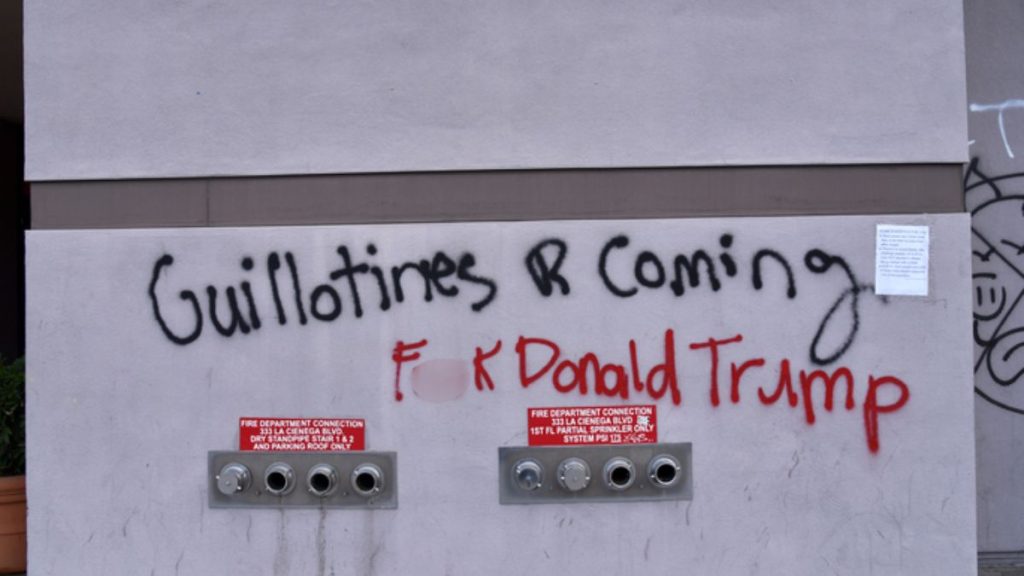 Guillotines R Coming
F K Donald Trump
FIRE DEPARTMENT CONNECTION
333 LA CIENEGA BLVD.
DRY STANDPIPE STAIR 1 & 2
AND PARKING ROOF ONLY
FIRE DEPARTMENT CONNECTION
333 LA CIENEGA BLVD
1ST FL PARTIAL SPRINKLER ONLY
SYSTEM PSI 175